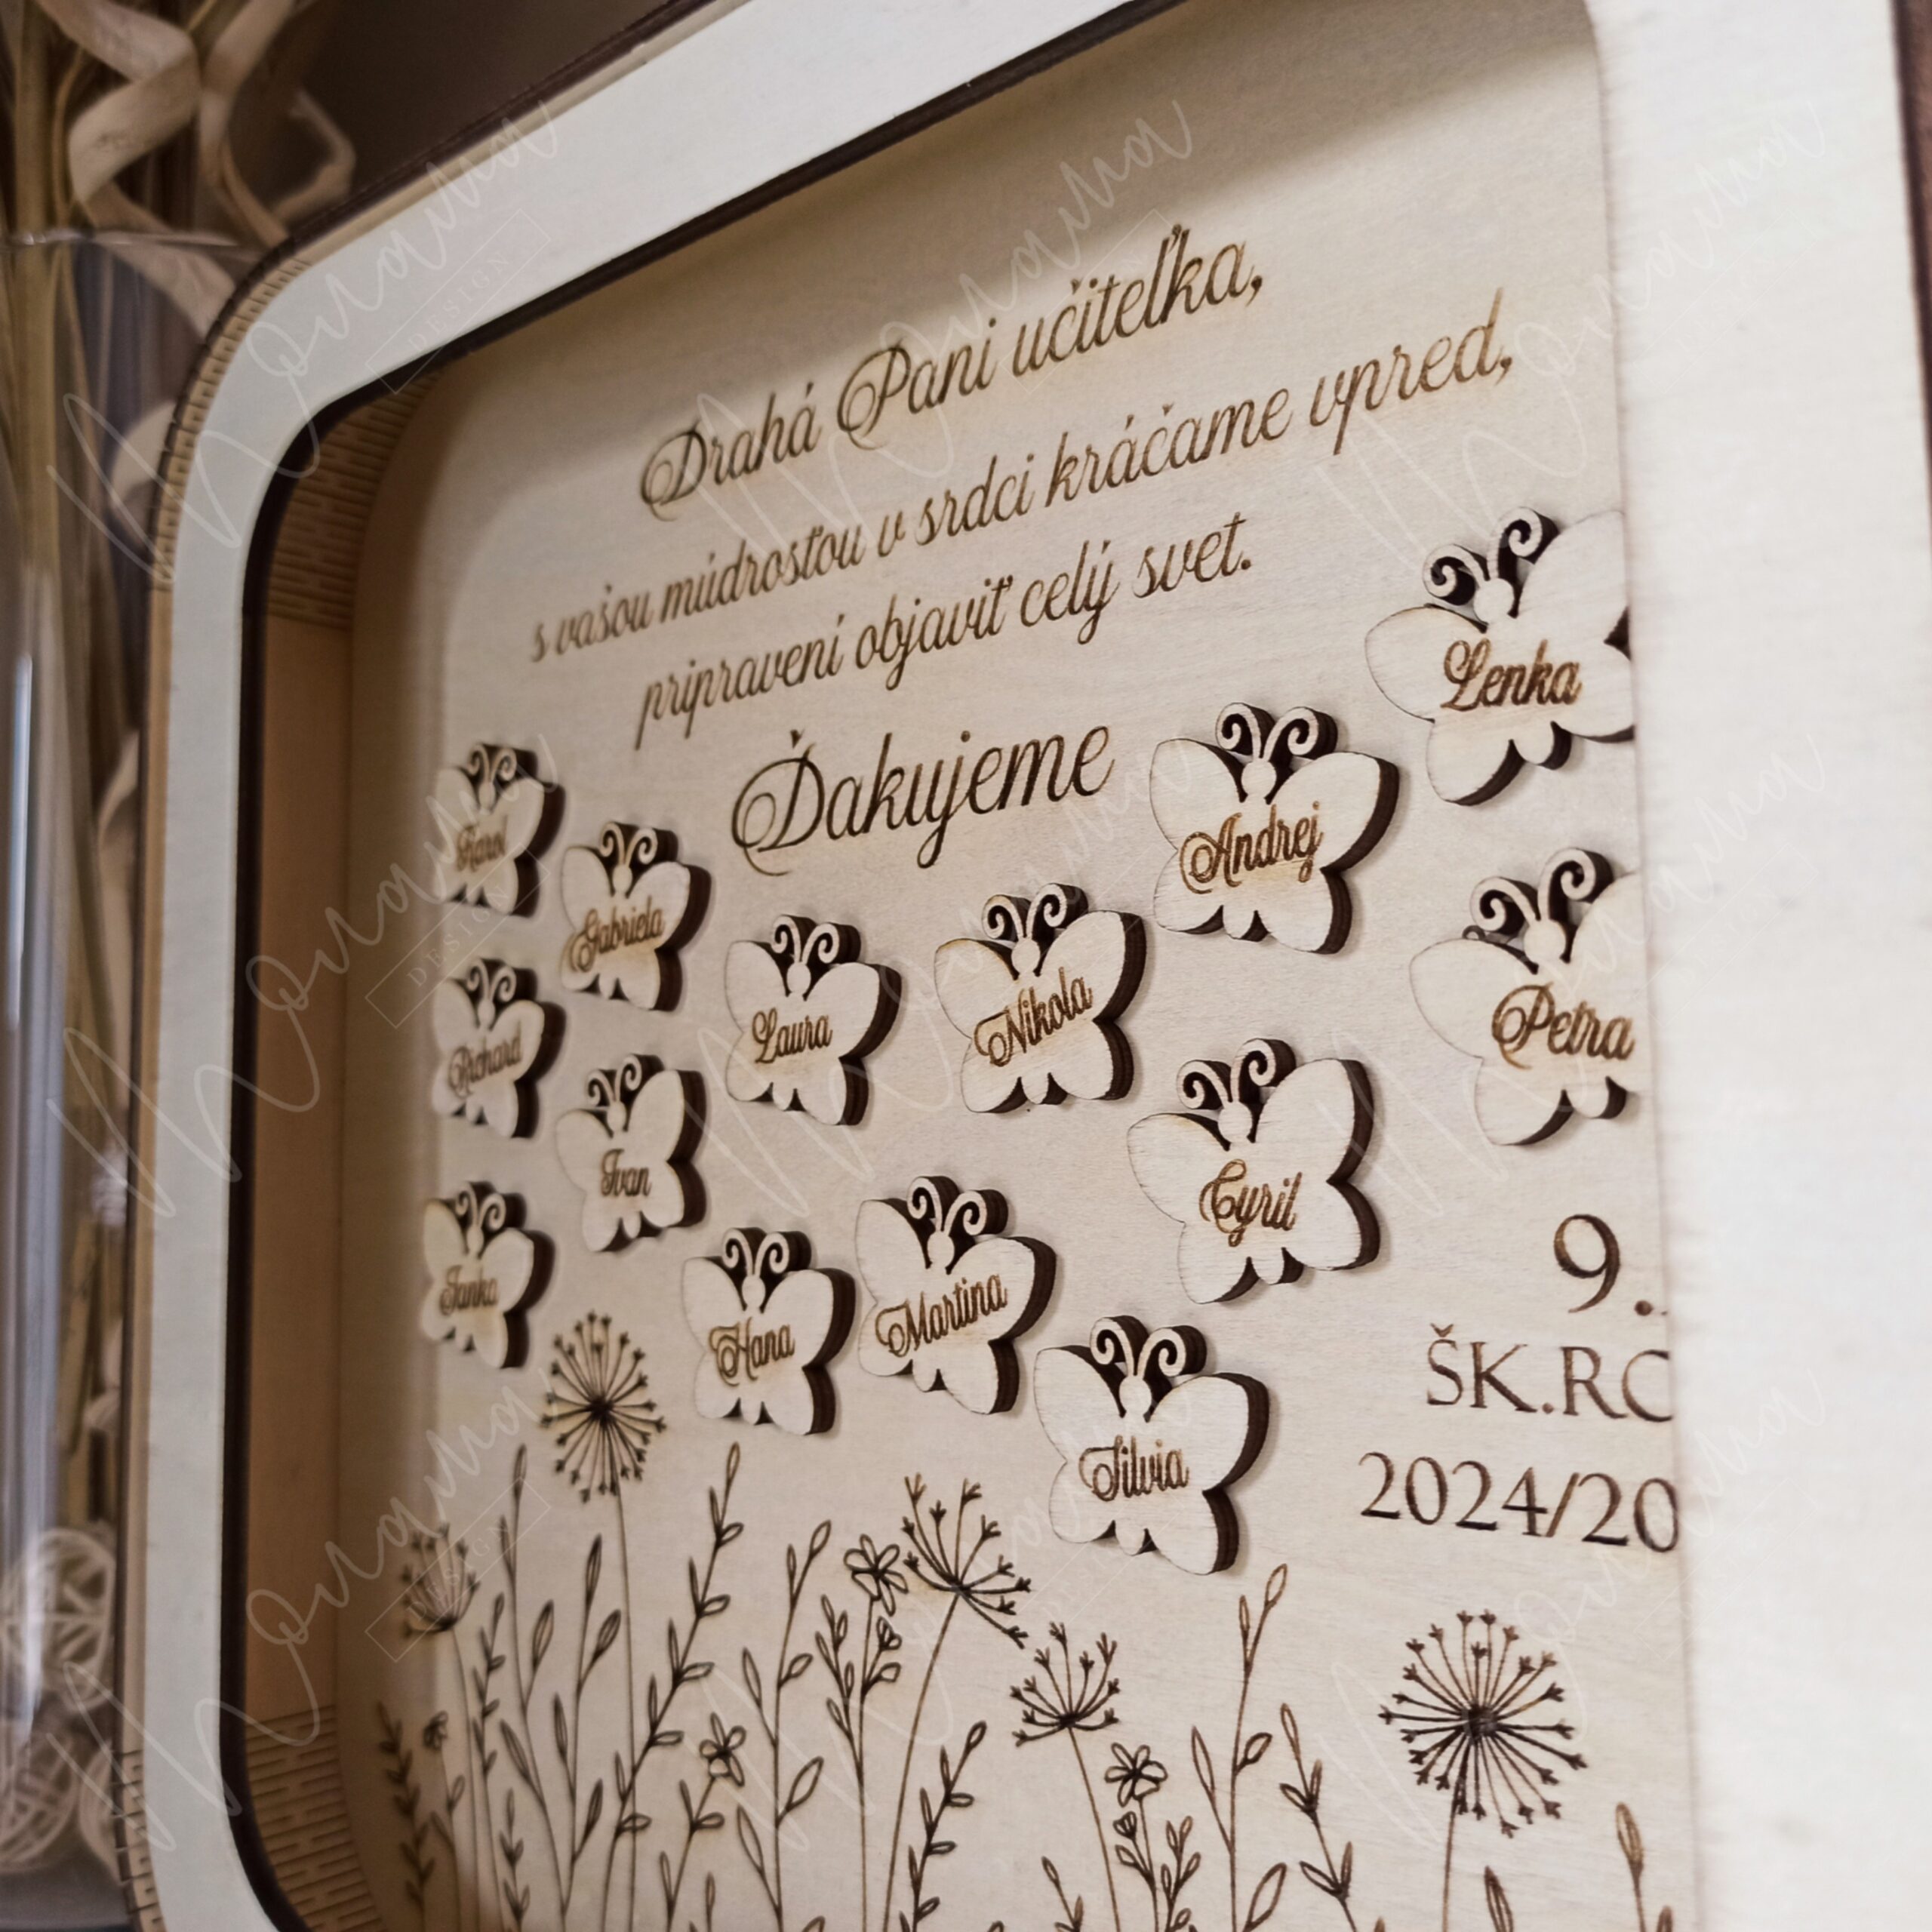 Drahá Pani učiteľka,
s vašou múdrosťou v srdci kráčame vpred,
pripravení objaviť celý svet.
Ďakujeme
Lenka
Andrej
Karol
Gabriela
Laura
Nikola
Petra
Richard
Ivan
Cyril
Janka
Hana
Martina
Silvia
9.
ŠK.RO
2024/20
DESIGN